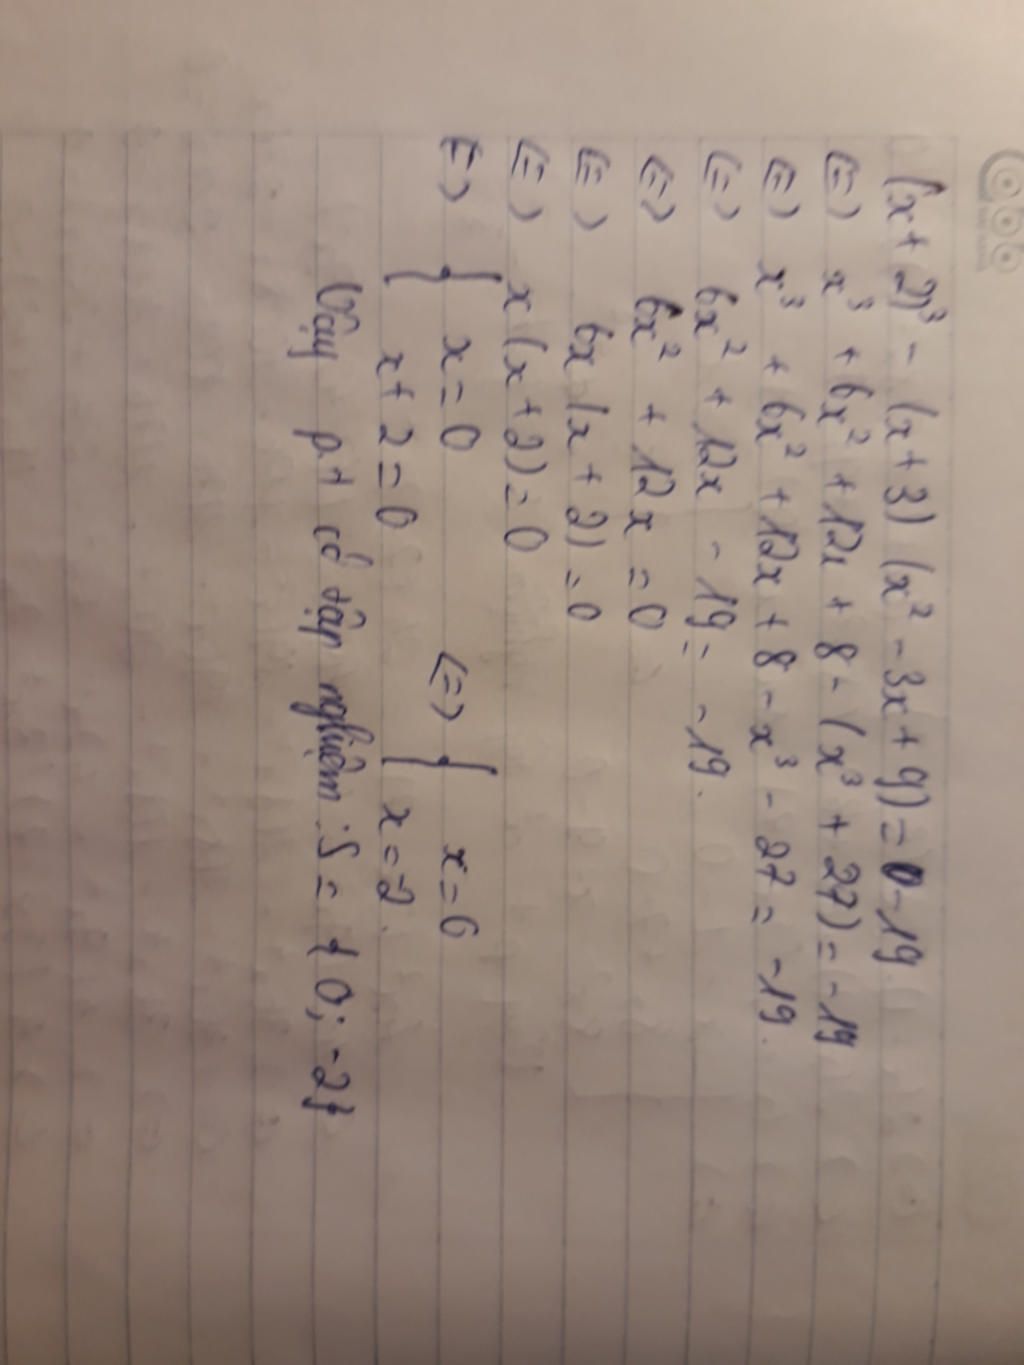 (x+2)³ - (x+3)(x² - 3x + 9) = -19
<=> x³ + 6x² + 12x + 8 - (x³ + 27) = -19
<=> x³ + 6x² + 12x + 8 - x³ - 27 = -19.
<=> 6x² + 12x - 19 = -19.
<=> 6x² + 12x = 0
<=> 6x(x+2) = 0
<=> x(x+2) = 0
=> { x = 0 <=> { x = 0
x + 2 = 0 x = -2.
Vậy pt có tập nghiệm : S = {0; -2}